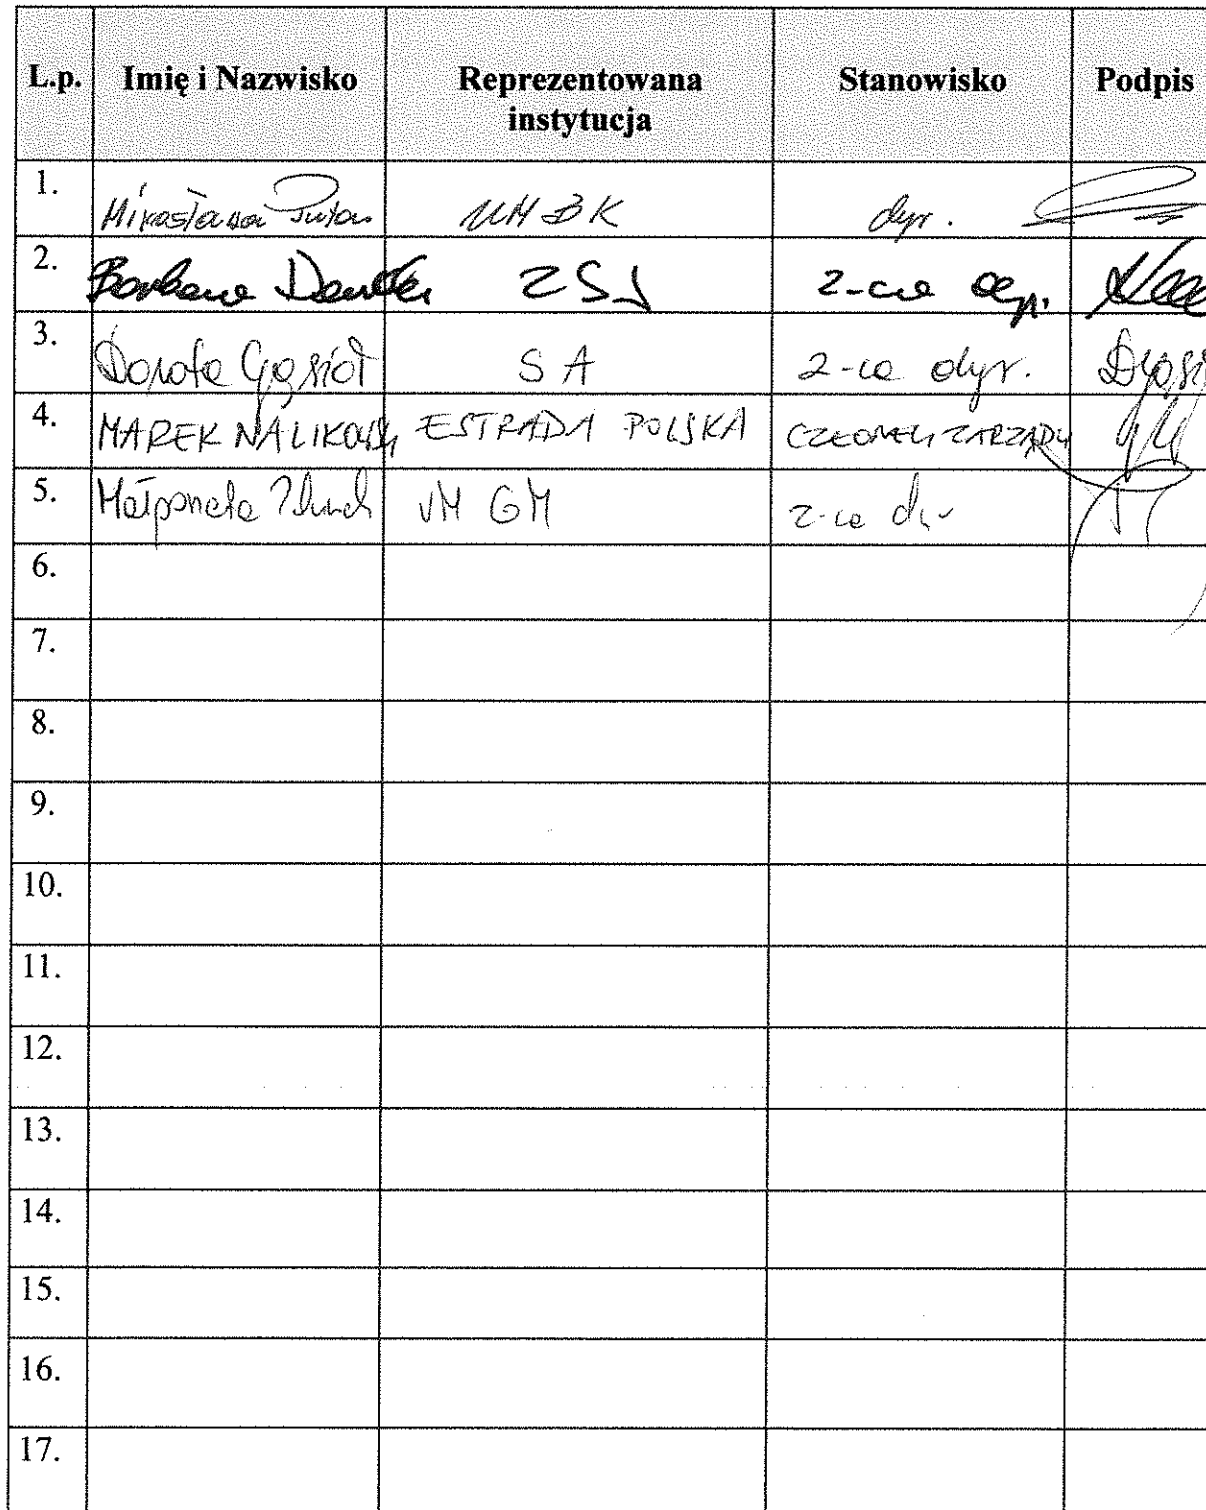 L.p. Imię i Nazwisko Reprezentowana instytucja Stanowisko Podpis
1. Mirosława UM BK dyr.
2. Barbara ZSJ z-ca dyr.
3. Dorota Gąsioł SA z-ca dyr.
4. MAREK ESTRADA POLSKA CZŁONEK ZARZĄDU
5. Małgorzata UM GM z-ca dyr
6.
7.
8.
9.
10.
11.
12.
13.
14.
15.
16.
17.